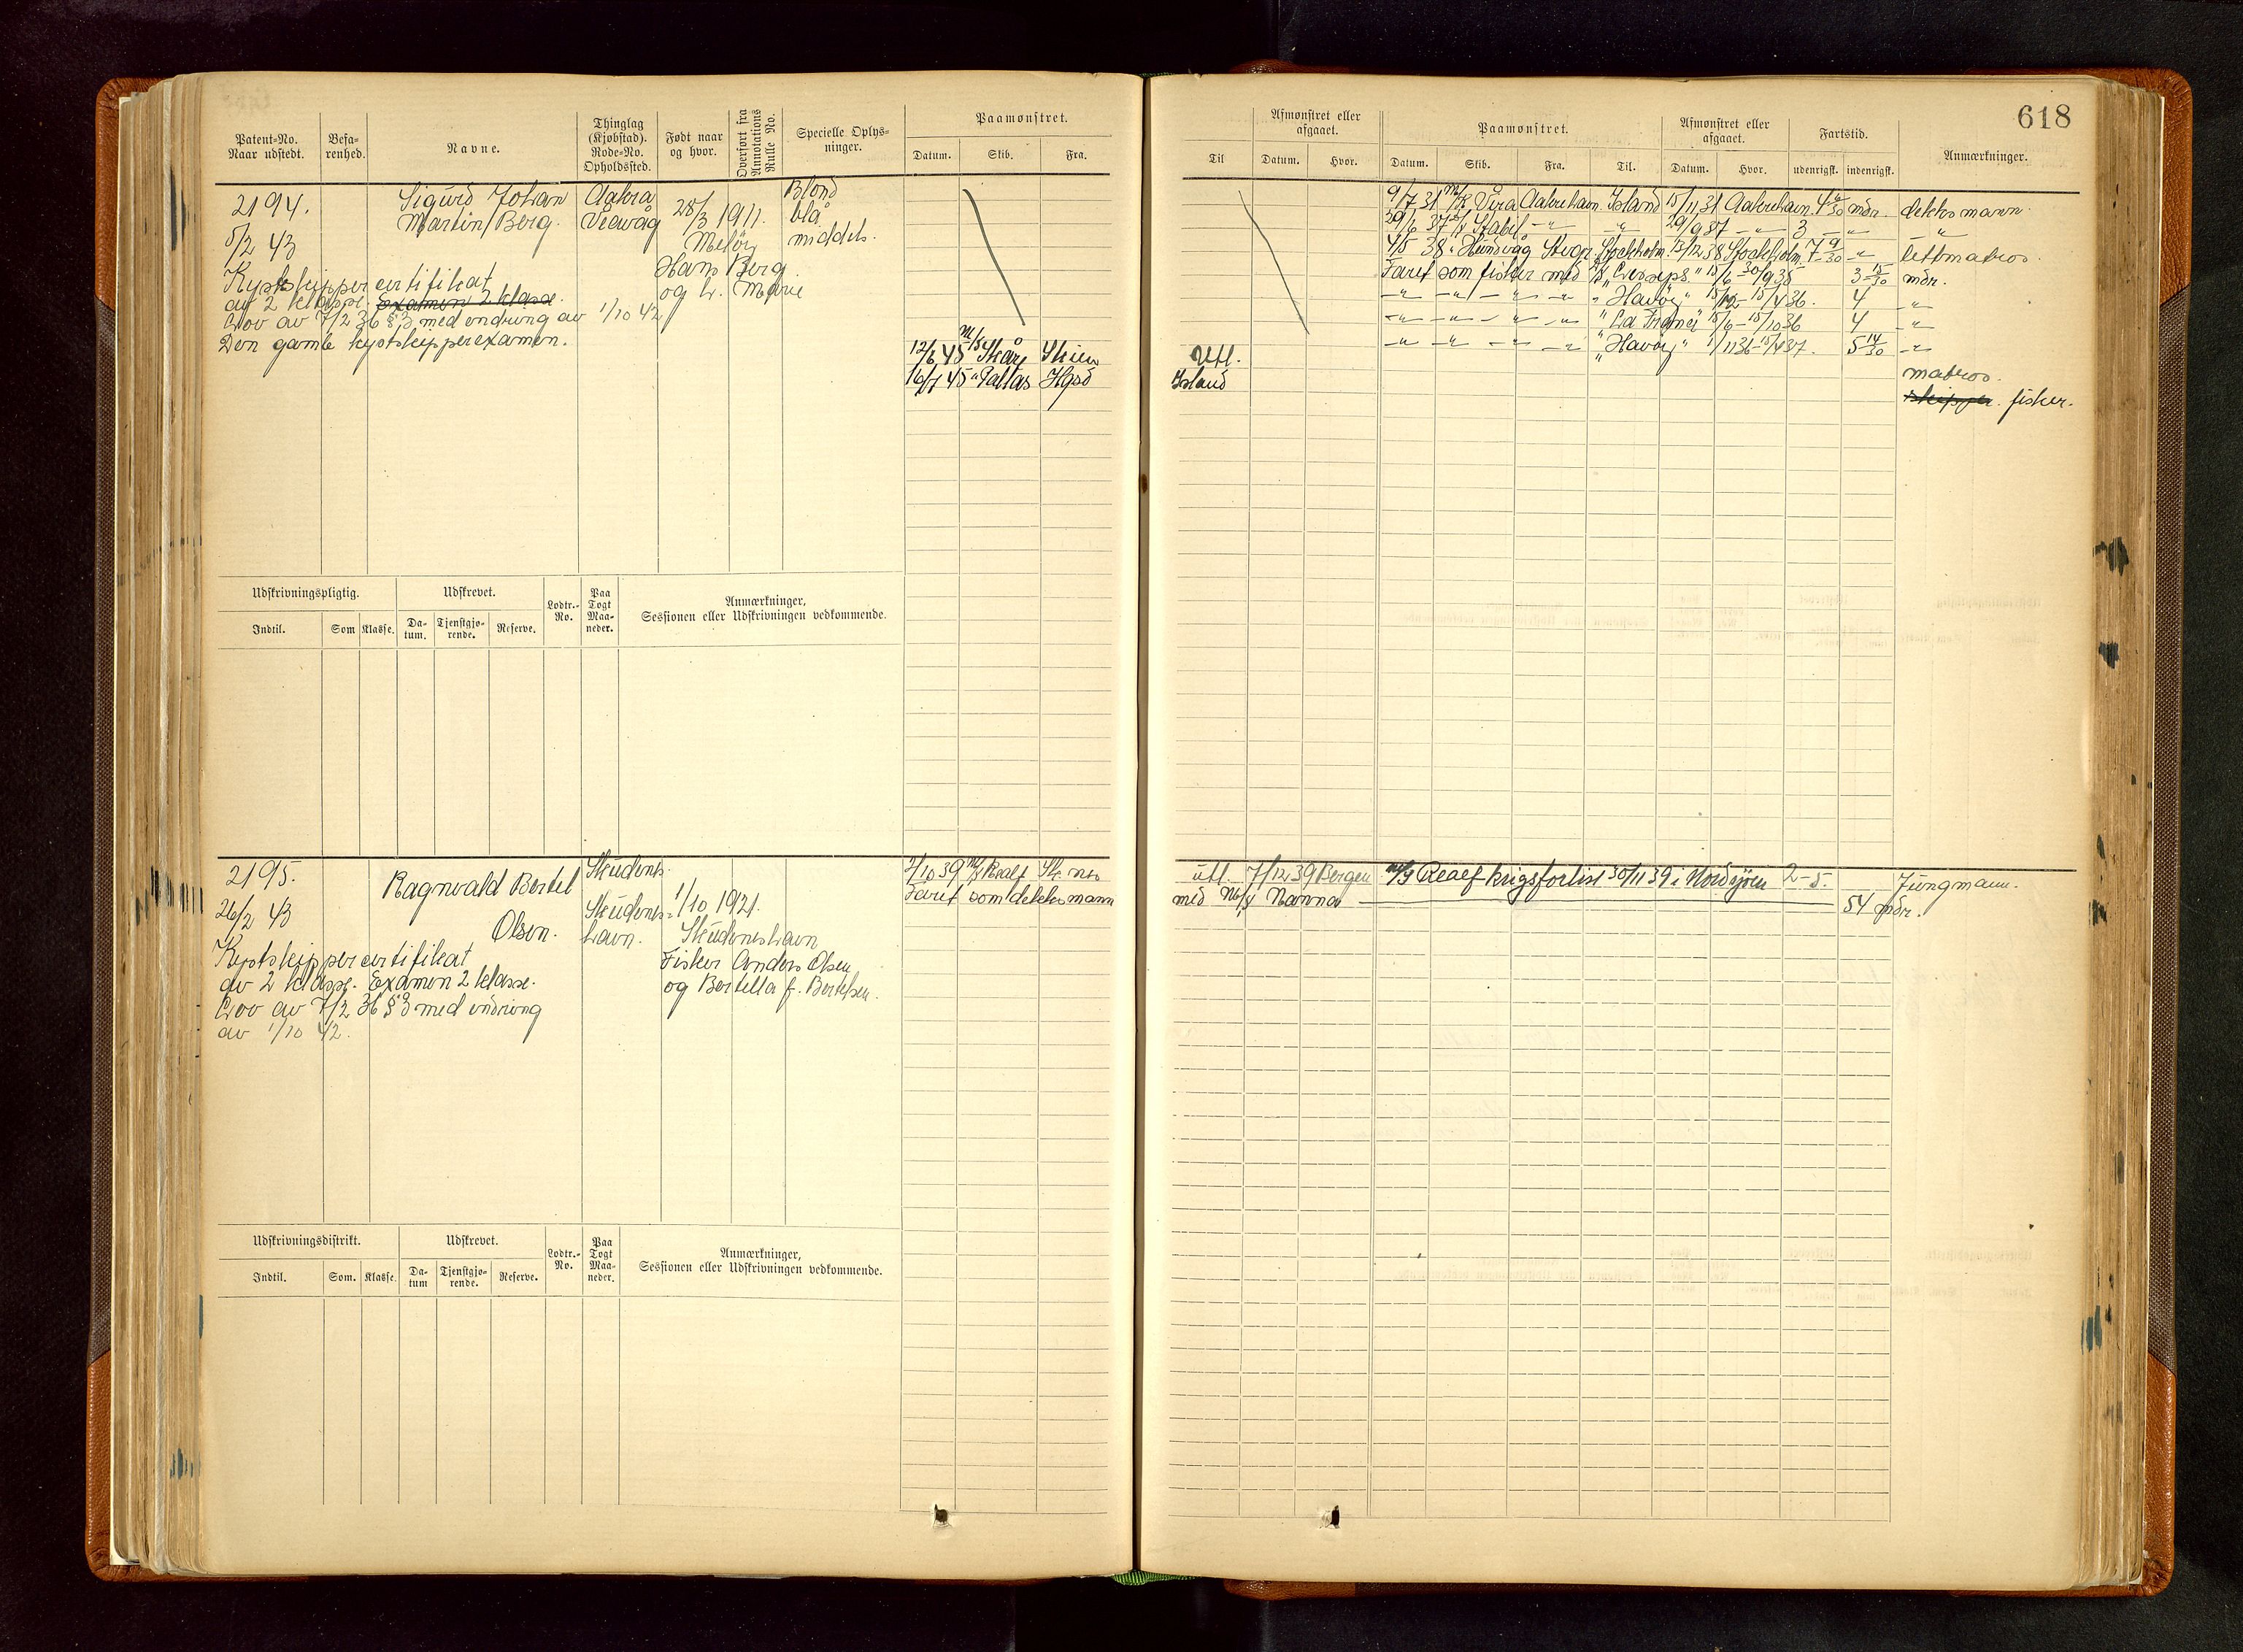 618
Patent=No. Naar udstedt.
Befa-renhed.
Navne.
Thinglag (Kjøbstad). Rode=No. Opholdssted.
Født naar og hvor.
Overført fra Annotations Rulle No.
Specielle Oplys-ninger.
Paamønstret.
Datum. Skib. Fra.
Til
Afmønstret eller afgaaet.
Datum. Hvor.
Paamønstret.
Datum. Skib. Fra. Til.
Afmønstret eller afgaaet.
Datum. Hvor.
Fartstid.
udenrigsk. indenrigsk.
Anmærkninger.
2194.
5/2 43
Sigurd Johan
Martin Berg.
Aakra
Veavåg
28/3 1911.
Meløy
Hans Berg
og h. Marie
Blond
blå
middels.
Kystskippercertifikat
av 2 klasse. Examen 2 klasse.
Lov av 7/2 36 § 3 med endring av 1/10 42
Den gamle kystskipperexamen.
12/6 45 M/S Skåry Skien
16/7 45 " Pallas Hgsd
Utl.
Island
9/7 31 M/K Vira Aakrehavn Island 15/11 31 Aakrehavn 4 6/30 mdr. dekksmann
29/6 37 Stabil -"- -"- 29/9 37 -"- 3 -"- -"-
4/5 38 " Hundvåg Stvgr Stockholm 13/12 38 Stockholm 7 9/30 -"- lettmatros
Faret som fisker med 15/6 30/9 35 3 15/30 mdr.
-"- -"- -"- -"- " Havøy" 15/12 - 15/4 36. 4 -"-
-"- -"- -"- -"- 15/6 - 15/10 36 4 -"-
-"- -"- -"- -"- " Havøy" 1/11 36 - 15/4 37. 5 14/30 -"-
matros.
skipper. fisker.
Udskrivningspligtig.
Indtil. Som Klasse.
Udskrevet.
Da-tum. Tjenstgjø-rende. Reserve.
Lodtr.-No.
Paa Togt Maa-neder.
Anmærkninger,
Sessionen eller Udskrivningen vedkommende.
2195.
26/2 43
Ragnvald Bertel
Olsen.
Skudenes
Skudenes-
havn.
1/10 1921.
Skudeneshavn
Fisker Anders Olsen
og Bertella f. Bertelsen.
Kystskippercertifikat
av 2 klasse. Examen 2 klasse.
Lov av 7/2 36 § 3 med endring
av 1/10 42.
2/10 39 M/S Realf
Faret som dekksmann
utl. 7/12 39 Bergen M/S Realf krigsforlist 30/11 39 i Nordsjøen 2 - 5. Jungmann.
med M/K Nanna 54 mdr.
Udskrivningsdistrikt.
Indtil. Som. Klasse.
Udskrevet.
Da-tum Tjenstgjø-rende. Reserve.
Lodtr.-No.
Paa Togt Maa-neder.
Anmærkninger,
Sessionen eller Udskrivningen vedkommende.